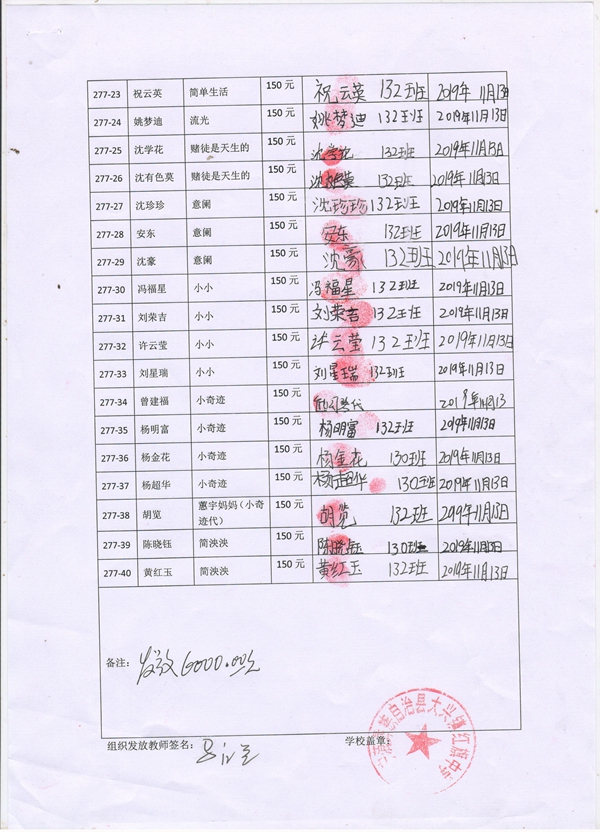 277-23 祝云英 简单生活 150 元 祝云英 132班 2019年11月13日
277-24 姚梦迪 流光 150 元 姚梦迪 132班 2019年11月13日
277-25 沈学花 赌徒是天生的 150 元 沈学花 132班 2019年11月13日
277-26 沈有色莫 赌徒是天生的 150 元 沈有色莫 132班 2019年11月13日
277-27 沈珍珍 意阑 150 元 沈珍珍 132班 2019年11月13日
277-28 安东 意阑 150 元 安东 132班 2019年11月13日
277-29 沈豪 意阑 150 元 沈豪 132班 2019年11月13日
277-30 冯福星 小小 150 元 冯福星 132班 2019年11月13日
277-31 刘荣吉 小小 150 元 刘荣吉 132班 2019年11月13日
277-32 许云莹 小小 150 元 许云莹 132班 2019年11月13日
277-33 刘星瑞 小小 150 元 刘星瑞 132班 2019年11月13日
277-34 曾建福 小奇迹 150 元 2019年11月13
277-35 杨明富 小奇迹 150 元 杨明富 132班 2019年11月13日
277-36 杨金花 小奇迹 150 元 杨金花 130班 2019年11月13日
277-37 杨超华 小奇迹 150 元 杨超华 130班 2019年11月13日
277-38 胡览 蕙宇妈妈（小奇迹代） 150 元 胡览 132班 2019年11月13日
277-39 陈晓钰 简泱泱 150 元 陈晓钰 130班 2019年11月13日
277-40 黄红玉 简泱泱 150 元 黄红玉 132班 2019年11月13日
备注： 发放6000.00元
组织发放教师签名： 学校盖章：
族自治县大兴镇红旗中